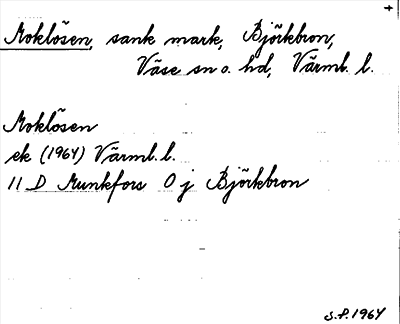 Moklösen, sank mark, Björkbron,
Väse sn o. hd, Värml. l.
Moklösen
ek (1964) Värml. l.
11 D Munkfors 0 j Björkbron
S.P. 1964